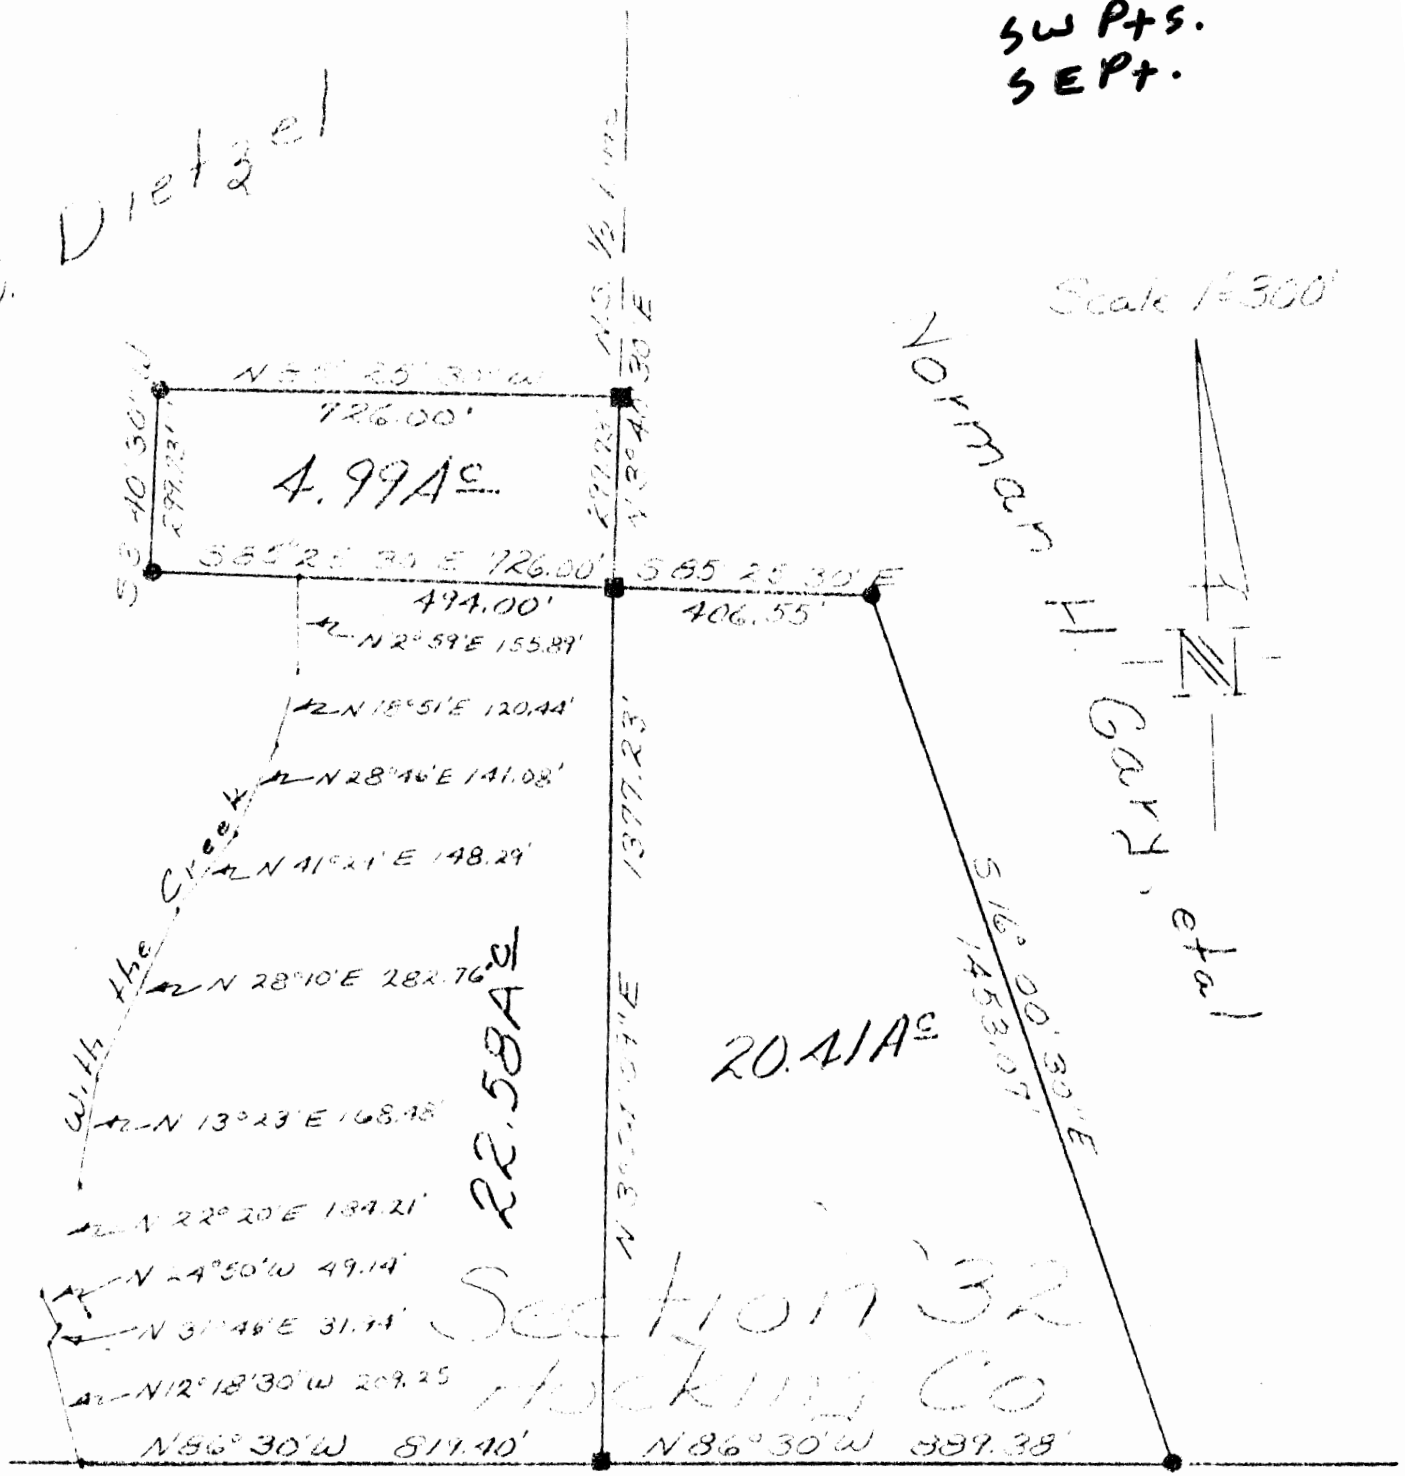 SW Pts.
SE Pt.
Dietzel
N-S 1/2 line
Scale 1"=300'
Norman H Gary, etal
N 85° 25' 30" W
726.00'
S 3 40' 30" W
299.73'
4.99 Ac
S 85° 25' 30" E 726.00'
494.00'
S 85 25 30" E
406.55'
N
N 2° 59' E 155.89'
N 18° 51' E 120.44'
N 28° 46' E 141.08'
N 41° 24' E 148.29'
N 28° 10' E 282.76'
N 13° 23' E 168.48'
N 22° 20' E 184.21'
N 24° 50' W 49.14'
N 31° 46' E 31.44'
N 12° 18' 30" W 209.25
With the Creek
22.58 Ac
1377.23'
20.41 Ac
S 16° 00' 30" E
1453.07'
Section 32
Hocking Co
N 86° 30' W 819.40'
N 86° 30' W 889.38'